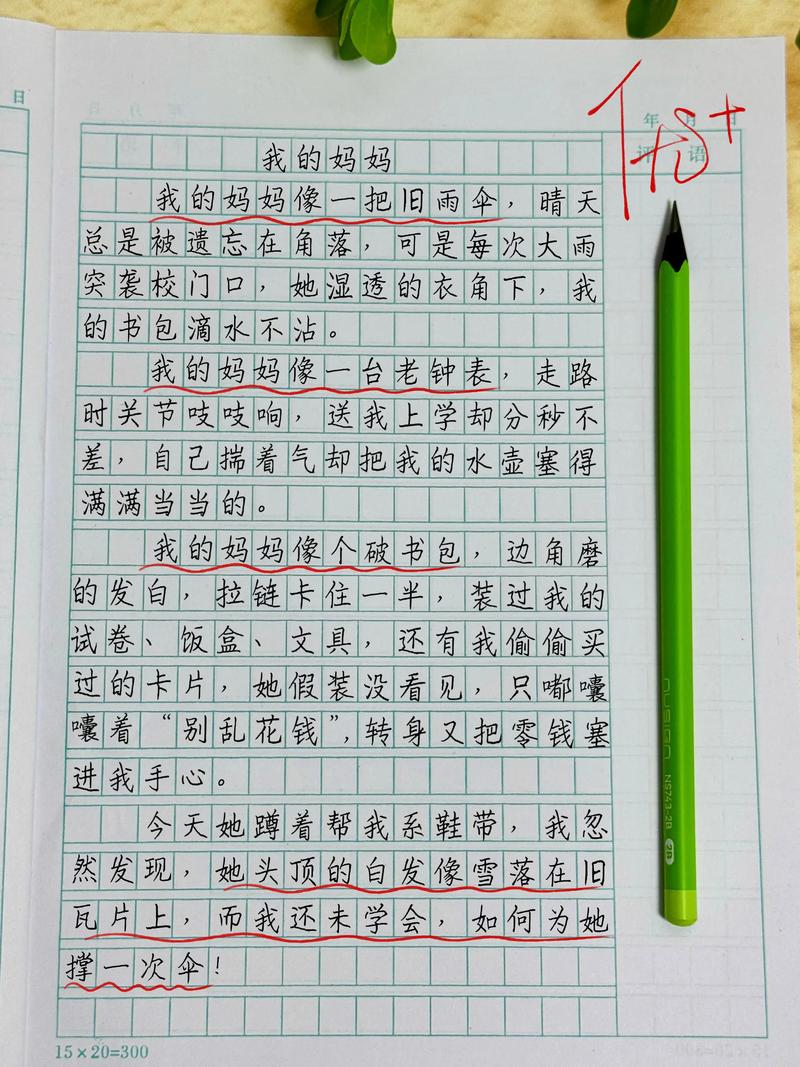 日
年 月 日
评 语
优+
我的妈妈
我的妈妈像一把旧雨伞，晴天
总是被遗忘在角落，可是每次大雨
突袭校门口，她湿透的衣角下，我
的书包滴水不沾。
我的妈妈像一台老钟表，走路
时关节吱吱响，送我上学却分秒不
差，自己揣着气却把我的水壶塞得
满满当当的。
我的妈妈像个破书包，边角磨
的发白，拉链卡住一半，装过我的
试卷、饭盒、文具，还有我偷偷买
过的卡片，她假装没看见，只嘟囔
囔着“别乱花钱”，转身又把零钱塞
进我手心。
今天她蹲着帮我系鞋带，我忽
然发现，她头顶的白发像雪落在旧
瓦片上，而我还未学会，如何为她
撑一次伞！
15×20=300
NUSIGN
NS743-2B
2B